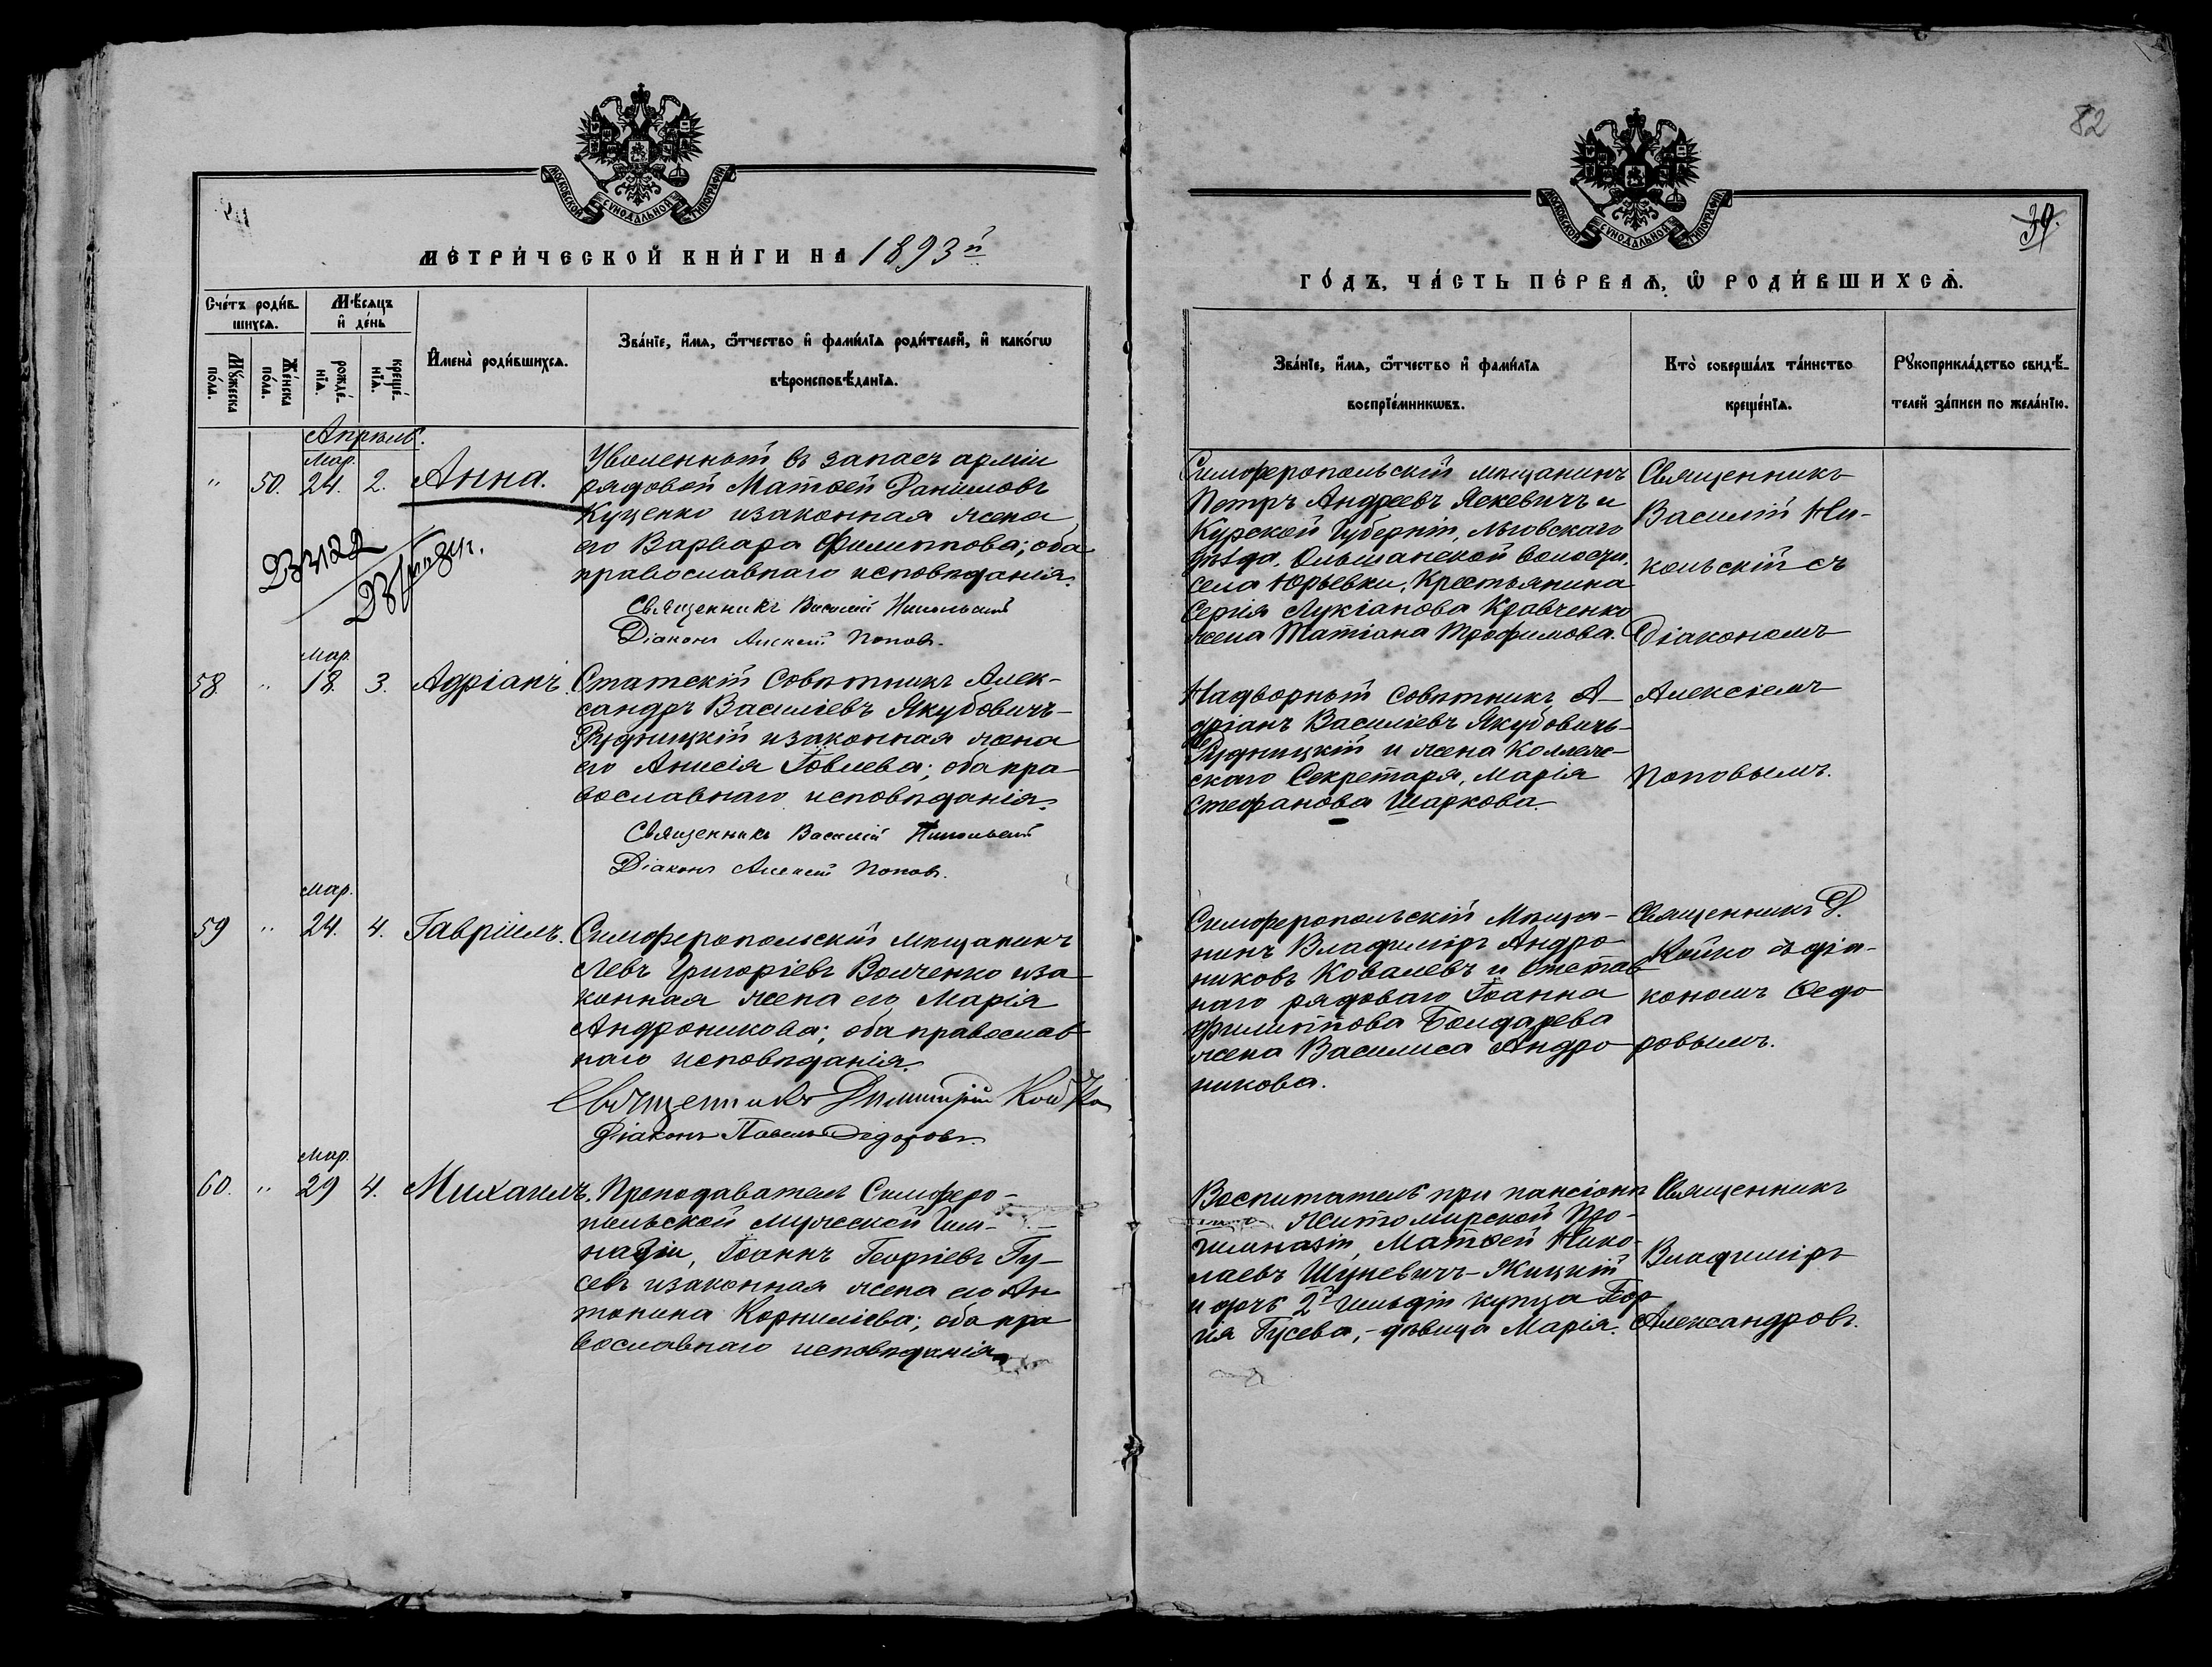 МОСКОВСКОЙ СУНОДАЛЬНОЙ ТИПОГРАФІИ
МЕТРИЧЕСКОЙ КНИГИ НА 1893й
Счетъ родив-
шихся.
Мѣсяцъ
и день
Мужеска
пола.
Женска
пола.
рожде-
нія.
креще-
нія.
Имена родившихся.
Званіе, имя, отчество и фамилія родителей, и какогѡ
вѣроисповѣданія.
Апрѣль.
Мар.
" 50. 24. 2. Анна.
Уволенный въ запасъ арміи
рядовой Матѳей Даниловъ
Куценко изаконная жена
его Варвара Филиппова; оба
православнаго исповѣданія.
Священникъ Василій Никольскій
Діаконъ Алексій Поповъ.
Мар.
58. " 18. 3. Адріанъ.
Статскій Совѣтникъ Алек-
сандръ Василіевъ Якубовичъ-
Рудницкій изаконная жена
его Анисія Іовлева; оба пра
вославнаго исповѣданія.
Священникъ Василій Никольскій
Діаконъ Алексій Поповъ.
Мар.
59 " 24. 4. Гавріилъ.
Симферопольскій мѣщанинъ
Левъ Григоріевъ Волченко иза
конная жена его Марія
Андроникова; оба православ
наго исповѣданія.
Священникъ Димитрій Койко
Діаконъ Павелъ Ѳедоровъ.
Мар.
60. " 29 4. Михаилъ.
Преподаватель Симферо-
польской мужеской Гим-
назіи, Іоаннъ Георгіевъ Гу-
севъ изаконная жена его Ан
тонина Корниліева; оба пра
вославнаго исповѣданія
82
39.
МОСКОВСКОЙ СУНОДАЛЬНОЙ ТИПОГРАФІИ
ГОДЪ, ЧАСТЬ ПЕРВАЯ, Ѡ РОДИВШИХСЯ.
Званіе, имя, отчество и фамилія
воспріемникѡвъ.
Кто совершалъ таинство
крещенія.
Рукоприкладство свидѣ-
телей записи по желанію.
Симферопольскій мѣщанинъ
Петръ Андреевъ Яскевичъ и
Курской Губерніи, Льговскаго
уѣзда, Ольшанской волости,
села Юрьевки, Крестьянина
Сергія Лукіанова Кравченко
жена Татіана Трофимова.
Священникъ
Василій Ни-
кольскій съ
Діакономъ
Надворный Совѣтникъ А-
дріанъ Василіевъ Якубовичъ-
Рудницкій и жена Коллеж-
скаго Секретаря, Марія
Стефанова Шаркова.
Алексіемъ
Поповымъ.
Симферопольскій Мѣща-
нинъ Владиміръ Андро
никовъ Ковалевъ и Отстав
наго рядоваго Іоанна
Филиппова Бондарева
жена Василиса Андро
никова.
Священникъ Д.
Койко съ діа-
кономъ Ѳедо
ровымъ.
Воспитатель при пансіонѣ
Житомирской Про-
гимназіи, Матѳей Нико-
лаевъ Шуневичъ-Жицкій
и дочь 2й гильдіи купца Геор
гія Гусева,-дѣвица Марія.
Священникъ
Владиміръ
Александровъ.